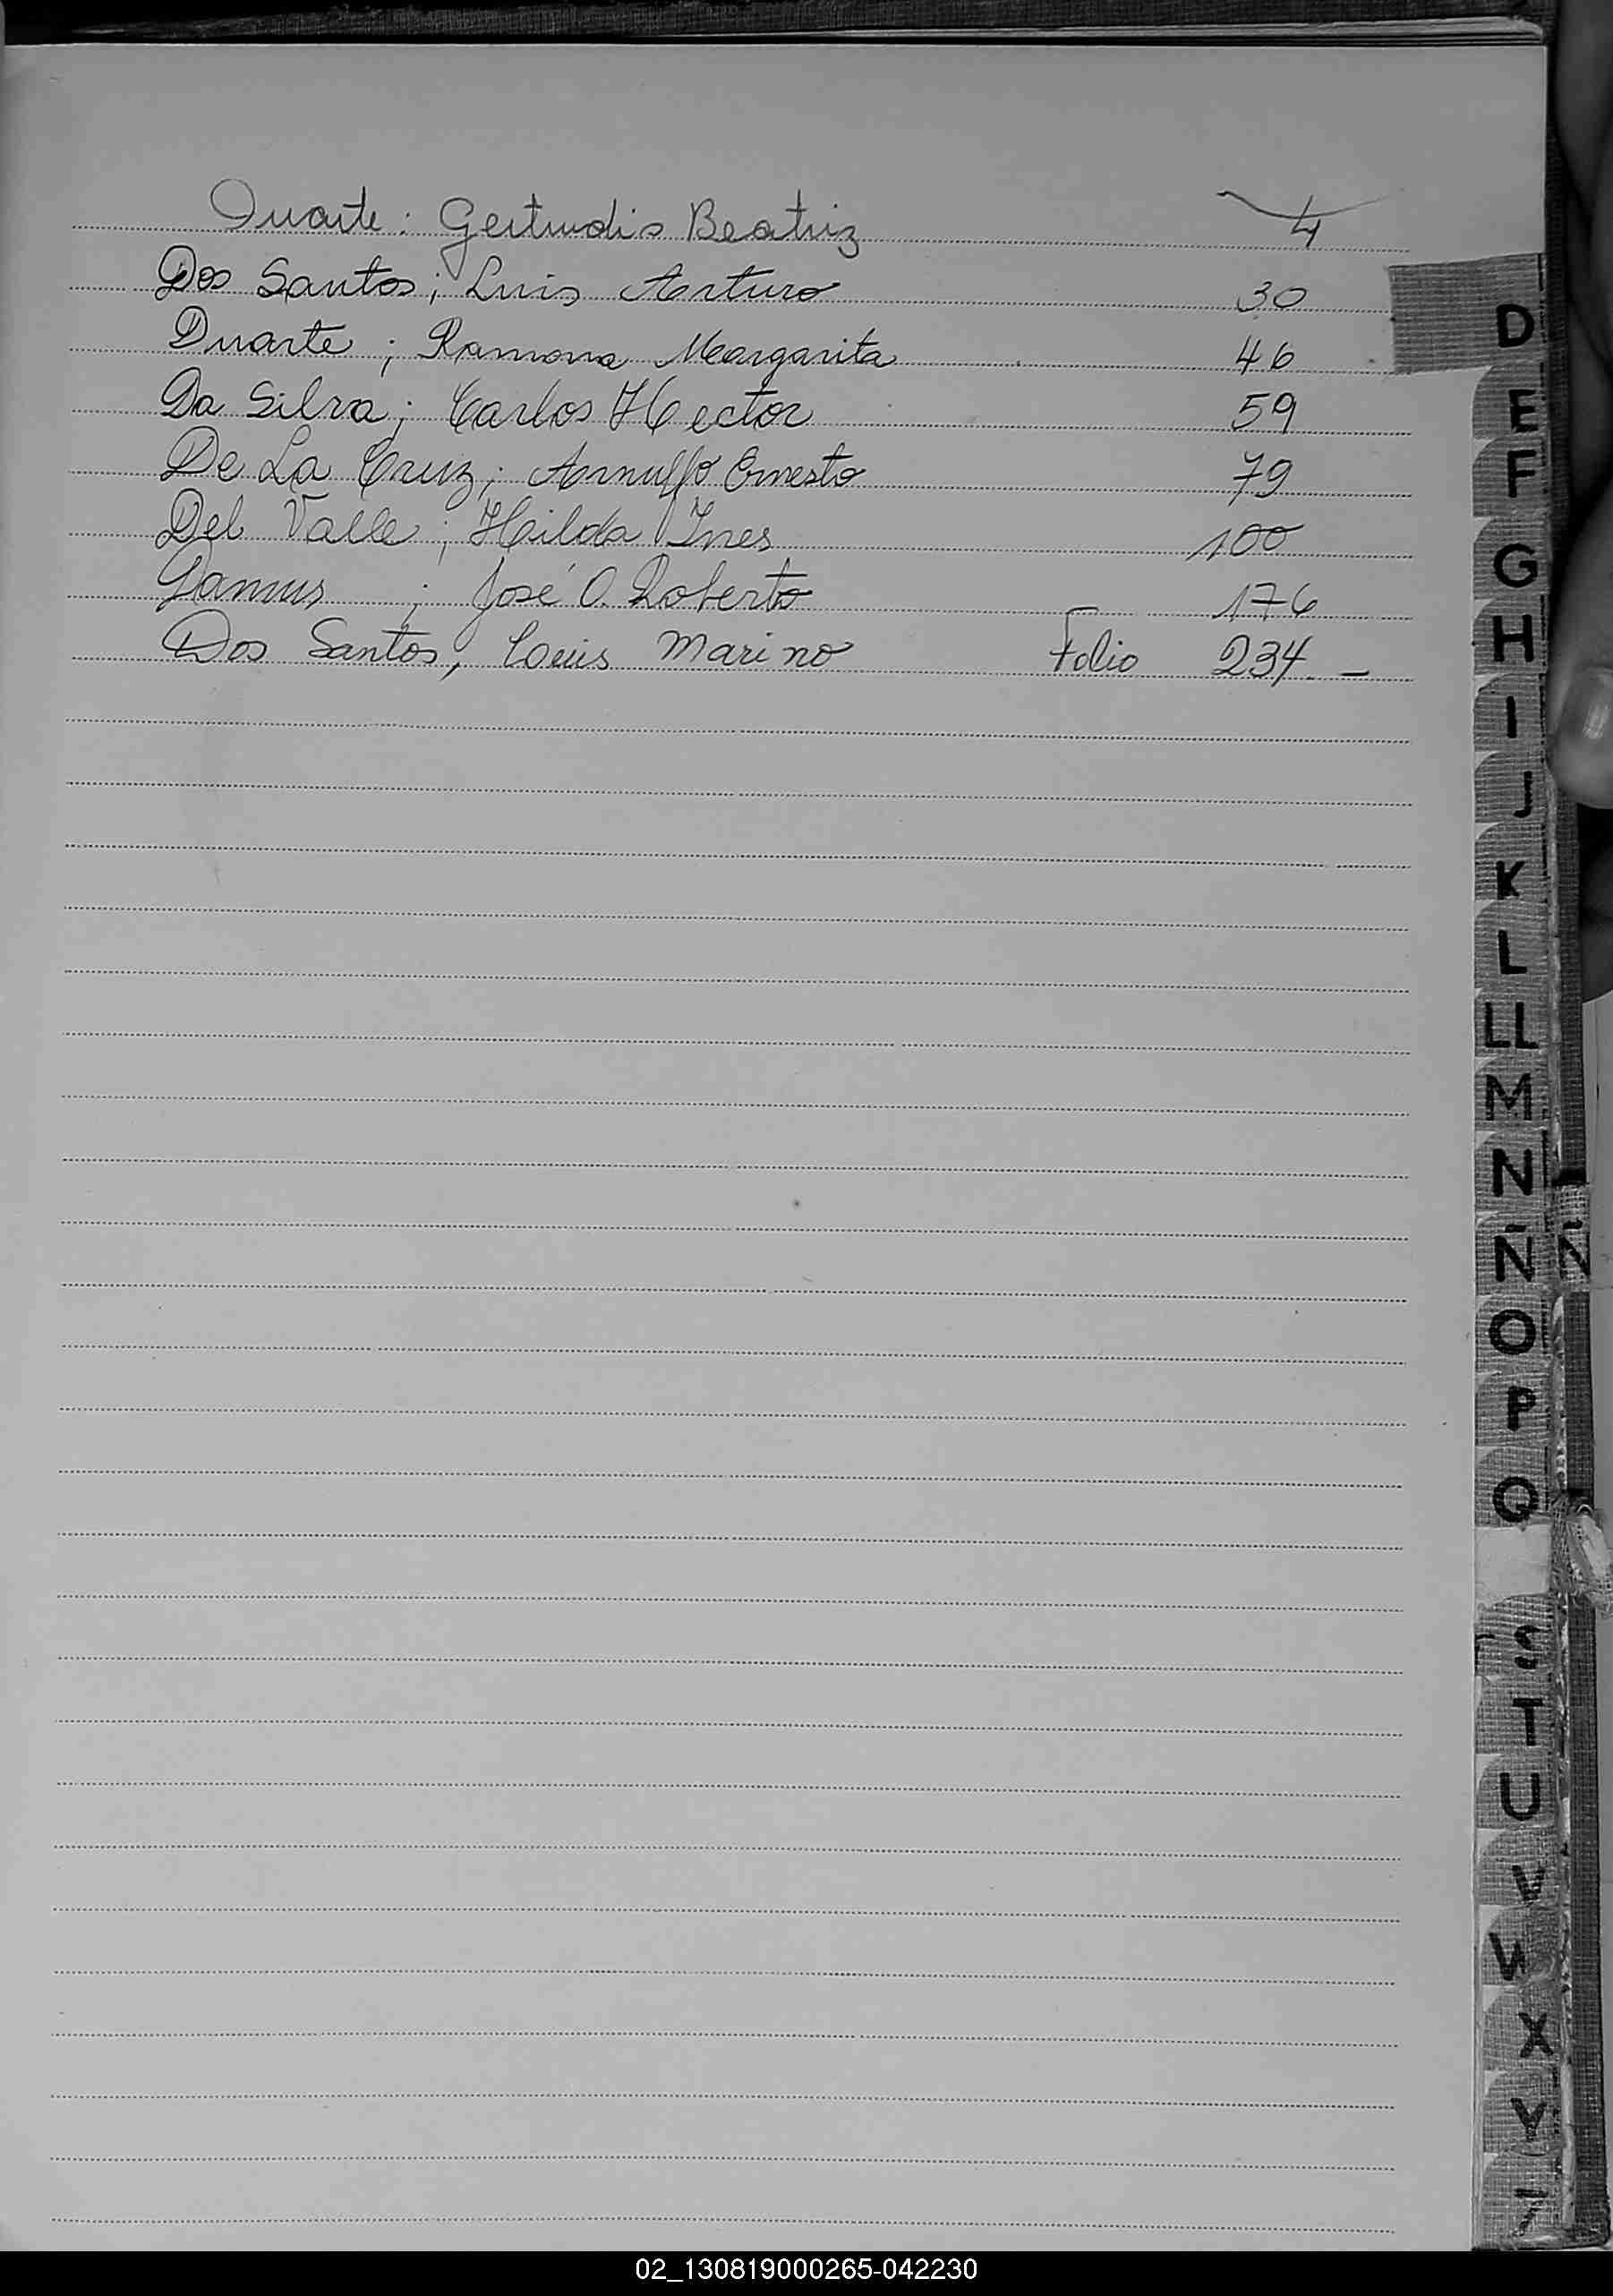 Duarte: Gertrudis Beatriz 4
Dos Santos; Luis Arturo 30
Duarte; Ramona Margarita 46
Da Silva; Carlos Hector 59
De La Cruz; Arnulfo Ernesto 79
Del Valle; Hilda Ines 100
Damus; José O. Roberto 176
Dos Santos, Luis Marino Folio 234 -
D
E
F
G
H
I
J
K
L
LL
M
N
Ñ Ñ
O
P
Q
S
T
U
V
W
X
Y
Z
02_130819000265-042230